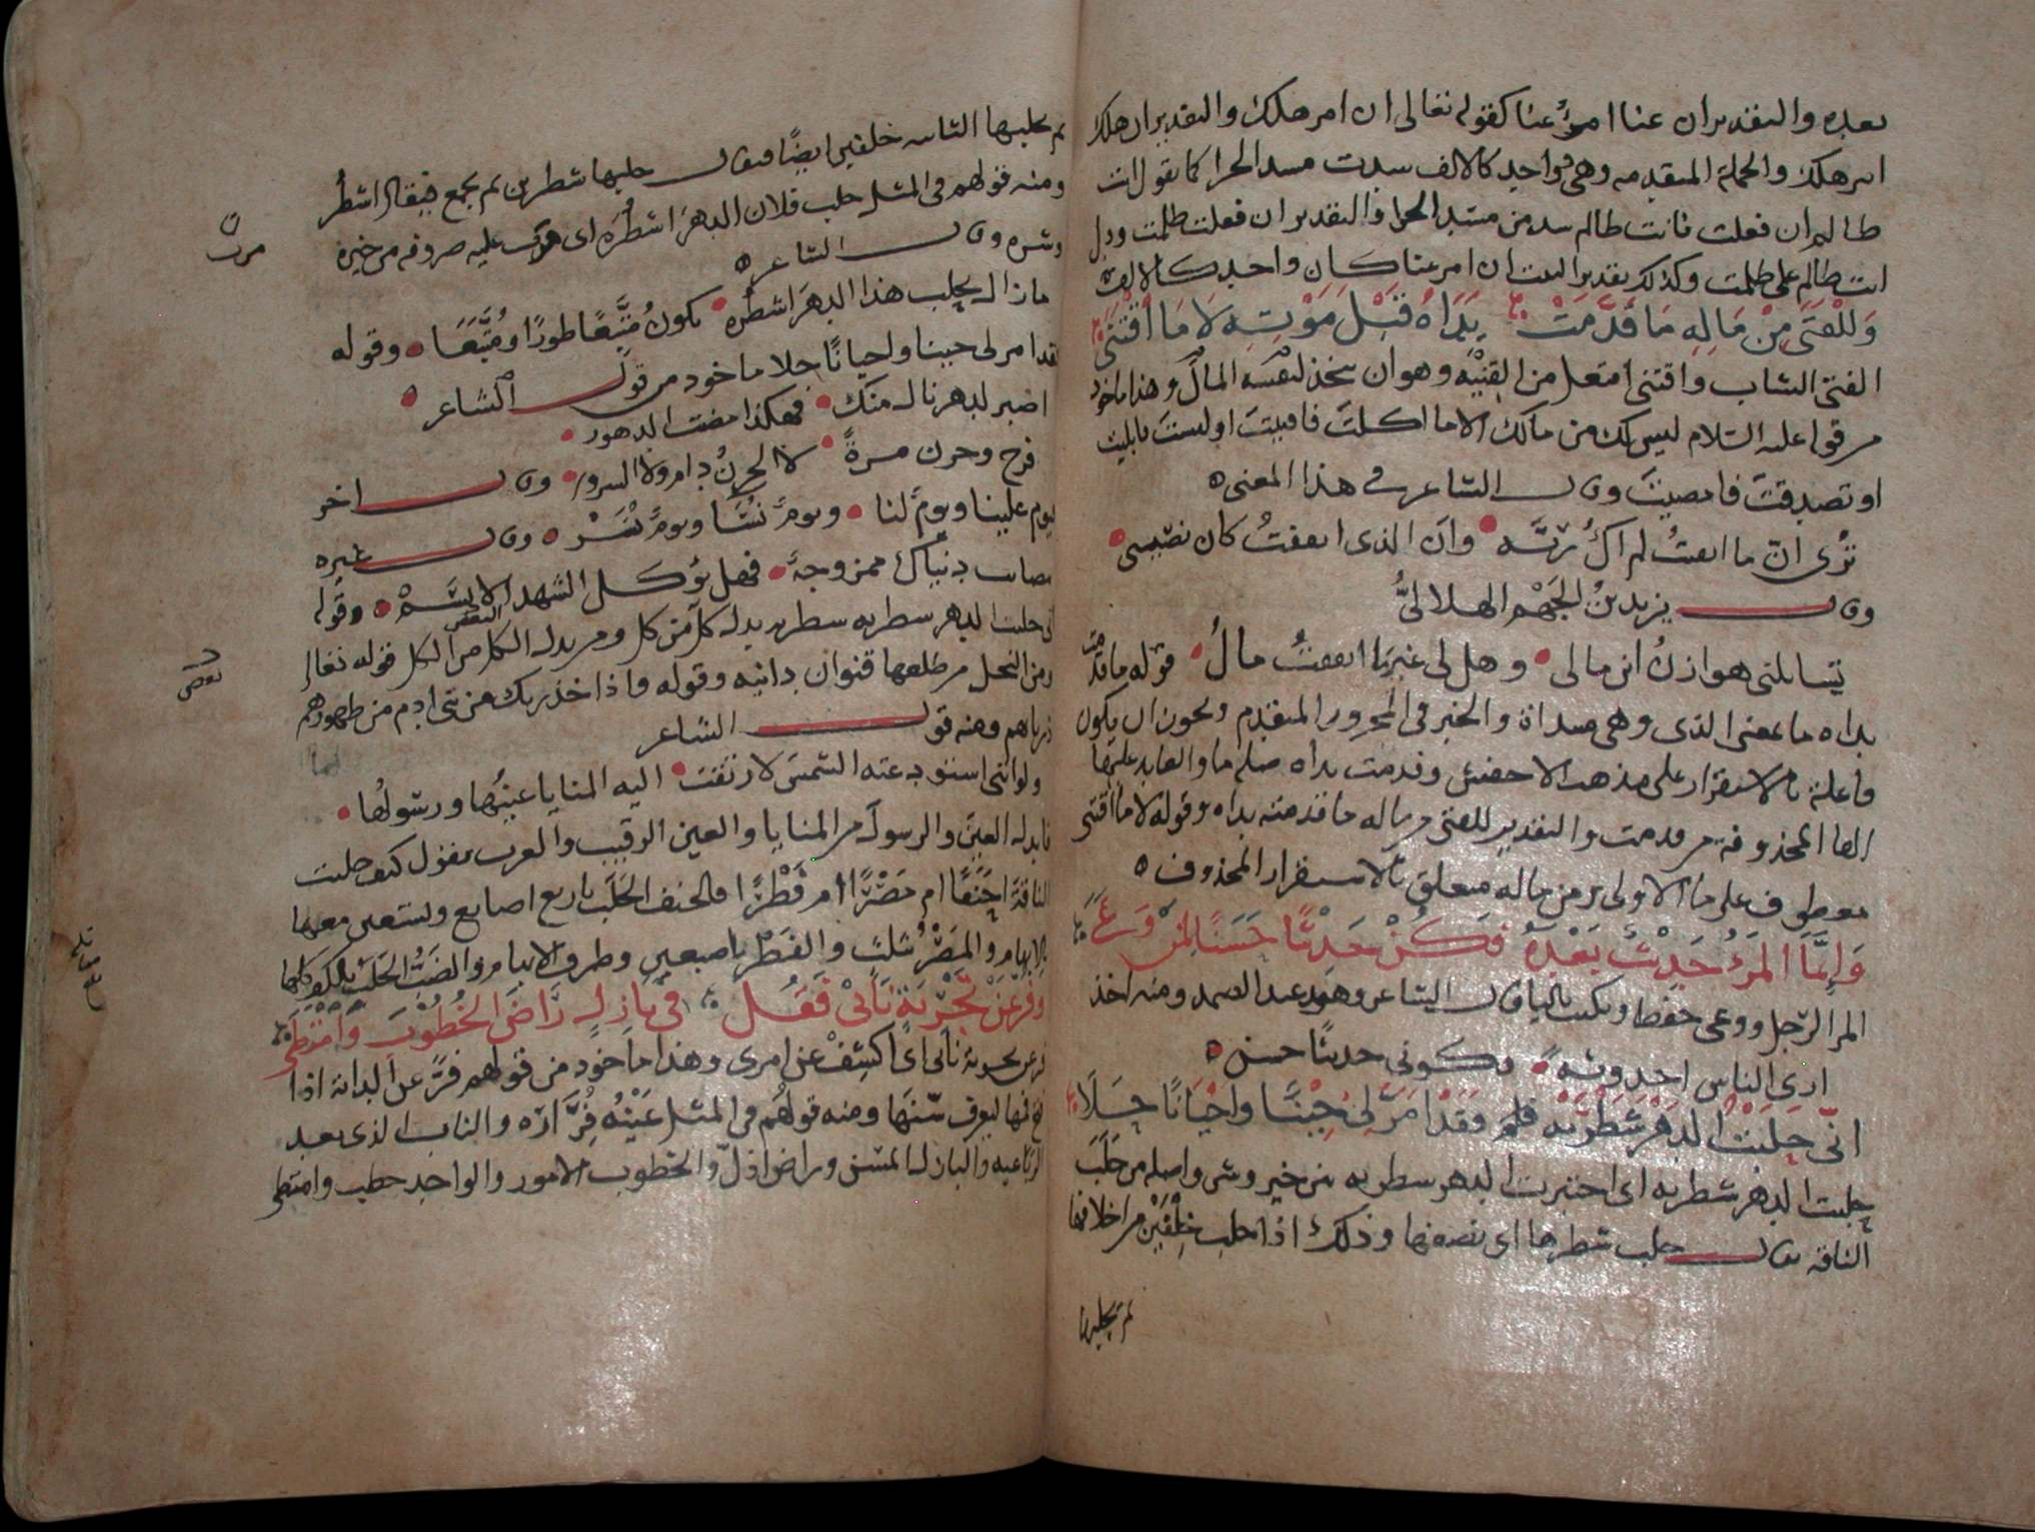 بعده والتقدير ان عنا امرؤ عنا كقوله تعالى ان امرؤ هلك والتقدير ان هلك
امرء هلك والجملة المتقدمه وهى واحد كالالف سدت مسد الجزا كما تقول انت
ظالم ان فعلت فانت ظالم سد من مسد الجزا والتقدير ان فعلت ظلمت ودل
انت ظالم على ظلمت وكذلك تقدير البيت ان امر عنا كان واحد كالالف
وَلِلْفَتَى مِنْ مَالِهِ مَا قَدَّمَتْ يَدَاهُ قَبْلَ مَوْتِهِ لَا مَا اقْتَنَى
الفتى الشاب واقتنى افتعل من القنيه وهو ان يتخذ لنفسه المال وهذا ماخوذ
من قوله عليه السلام ليس لك من مالك الا ما اكلت فافنيت او لبست فابليت
او تصدقت فامضيت وقال الشاعر فى هذا المعنى
ترى ان ما ابقيت لم اك ربه وان الذى انفقت كان نصيبى
وقال يزيد بن الجهم الهلالى
تسايلنى هوازن اين مالى وهل لى غير ما انفقت مال قوله ما قدمت
يداه ما بمعنى الذى وهى مبتداة والخبر فى المجرور المتقدم ويجوز ان يكون
فاعلة بالاستقرار على مذهب الاخفش وقدمت يداه صلة ما والعايد عليها
الها المحذوفة من قدمت والتقدير للفتى من ماله ما قدمته يداه وقوله لا ما اقتنى
معطوف على ما الاولى ومن ماله متعلق بالاستقرار المحذوف
وَاِنَّمَا المَرْءُ حَدِيْثٌ بَعْدَهُ فَكُنْ حَدِيْثًا حَسَنًا لِمَنْ وَعَى
المرا الرجل ووعى حفظ ويكتب باليا قال الشاعر وهو عبد الصمد ومنه اخذ
ارى الناس احدوثه فكونى حديثا حسن
انّى حَلَبْتُ الدَهْرَ شَطْرَيْهِ فَقَدْ اَمَرَّ لِى حِيْنًا واَحْيَانًا حَلَا
حلبت الدهر شطريه اى اختبرت الدهر شطريه من خير وشر واصله من حلب
الناقه يقال حلب شطرها اى نصفها وذلك اذا حلب خلفين من اخلافها
ثم يحلبها
ثم يحلبها الثانيه خلفين ايضًا فيقال حلبها شطرين ثم يجمع فيقال اشطُر
ومنه قولهم فى المثل حلب فلان الدهرَ اشطُرَه اى مرت عليه صروفه من خيره
مرت
وشره وقال الشاعر
ما زال يحلب هذا الدهرَ اشطُره يكونُ مُتَّبِعًا طورًا ومُتَّبَعَا وقوله
فقد امر لى حينا واحيانًا حلا ماخوذ من قول الشاعر
اصبر لدهر نال منك فهكذا مضت الدهور
فرح وحزن مرةً لا الحزنُ دام ولا السرور وقال اخر
فيوم علينا ويومٌ لنا ويومٌ نُسَا ويومٌ نُسَرْ وقال غيره
مصايب دنياك ممزوجةٌ فهل يؤكل الشهد الا بسَمْ وقوله
انى حلبت الدهر شطريه شطريه بدل كل من كل ومن بدل البعض من الكل قوله تعالى
بعض
ومن النخل من طلعها قنوان دانيه وقوله واذ اخذ ربك من بنى ادم من ظهورهم
ذرياتهم ومنه قول الشاعر
ولو اننى استودعته الشمس لارتقت اليه المنايا عينُها ورسولُها
فابدل العين والرسول من المنايا والعين الرقيب والعرب تقول كيف حلبت
الناقة اجَنْفًا ام مَصْرًا ام فَطْرًا فالجنف الحَلَب باربع اصابع ويستعين معها
بالابهام والمَصْر بثلث والفَطْر باصبعين وطرف الابهام والضَبُّ الحَلَب بالكف كلها
وَفُرَّ عَنْ تَجْرِبَةٍ نَابِىْ فَقُل فِى بَازِلٍ رَاضَ الخُطُوْبَ وَامْتَطَى
فر عن تجربة نابى اى اكشف عن امرى وهذا ماخوذ من قولهم فرَّ عن الدابة اذا
فتح فمها ليعرف سنها ومنه قولهم فى المثل عَيْنُه فُرَّارُه والناب الذى بعد
الرباعيه والبازل المسن وراض اذلّ والخطوب الامور والواحد خطب وامتطى